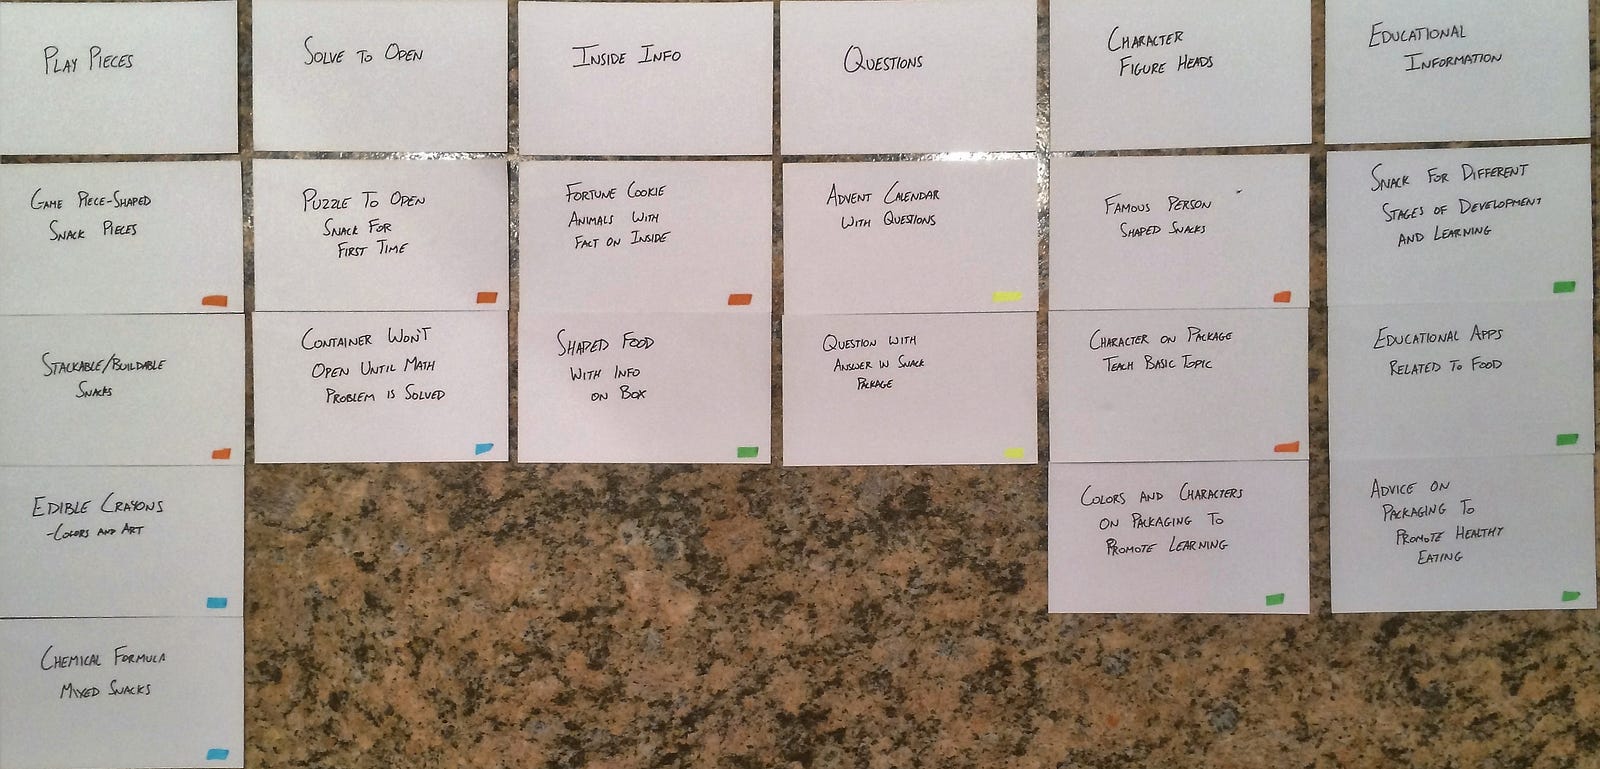 PLAY PIECES
SOLVE TO OPEN
INSIDE INFO
QUESTIONS
CHARACTER
FIGURE HEADS
EDUCATIONAL
INFORMATION
GAME PIECE-SHAPED
SNACK PIECES
PUZZLE TO OPEN
SNACK FOR
FIRST TIME
FORTUNE COOKIE
ANIMALS WITH
FACT ON INSIDE
ADVENT CALENDAR
WITH QUESTIONS
FAMOUS PERSON
SHAPED SNACKS
SNACK FOR DIFFERENT
STAGES OF DEVELOPMENT
AND LEARNING
STACKABLE/BUILDABLE
SNACKS
CONTAINER WON'T
OPEN UNTIL MATH
PROBLEM IS SOLVED
SHAPED FOOD
WITH INFO
ON BOX
QUESTION WITH
ANSWER IN SNACK
PACKAGE
CHARACTER ON PACKAGE
TEACH BASIC TOPIC
EDUCATIONAL APPS
RELATED TO FOOD
EDIBLE CRAYONS
-COLORS AND ART
COLORS AND CHARACTERS
ON PACKAGING TO
PROMOTE LEARNING
ADVICE ON
PACKAGING TO
PROMOTE HEALTHY
EATING
CHEMICAL FORMULA
MIXED SNACKS